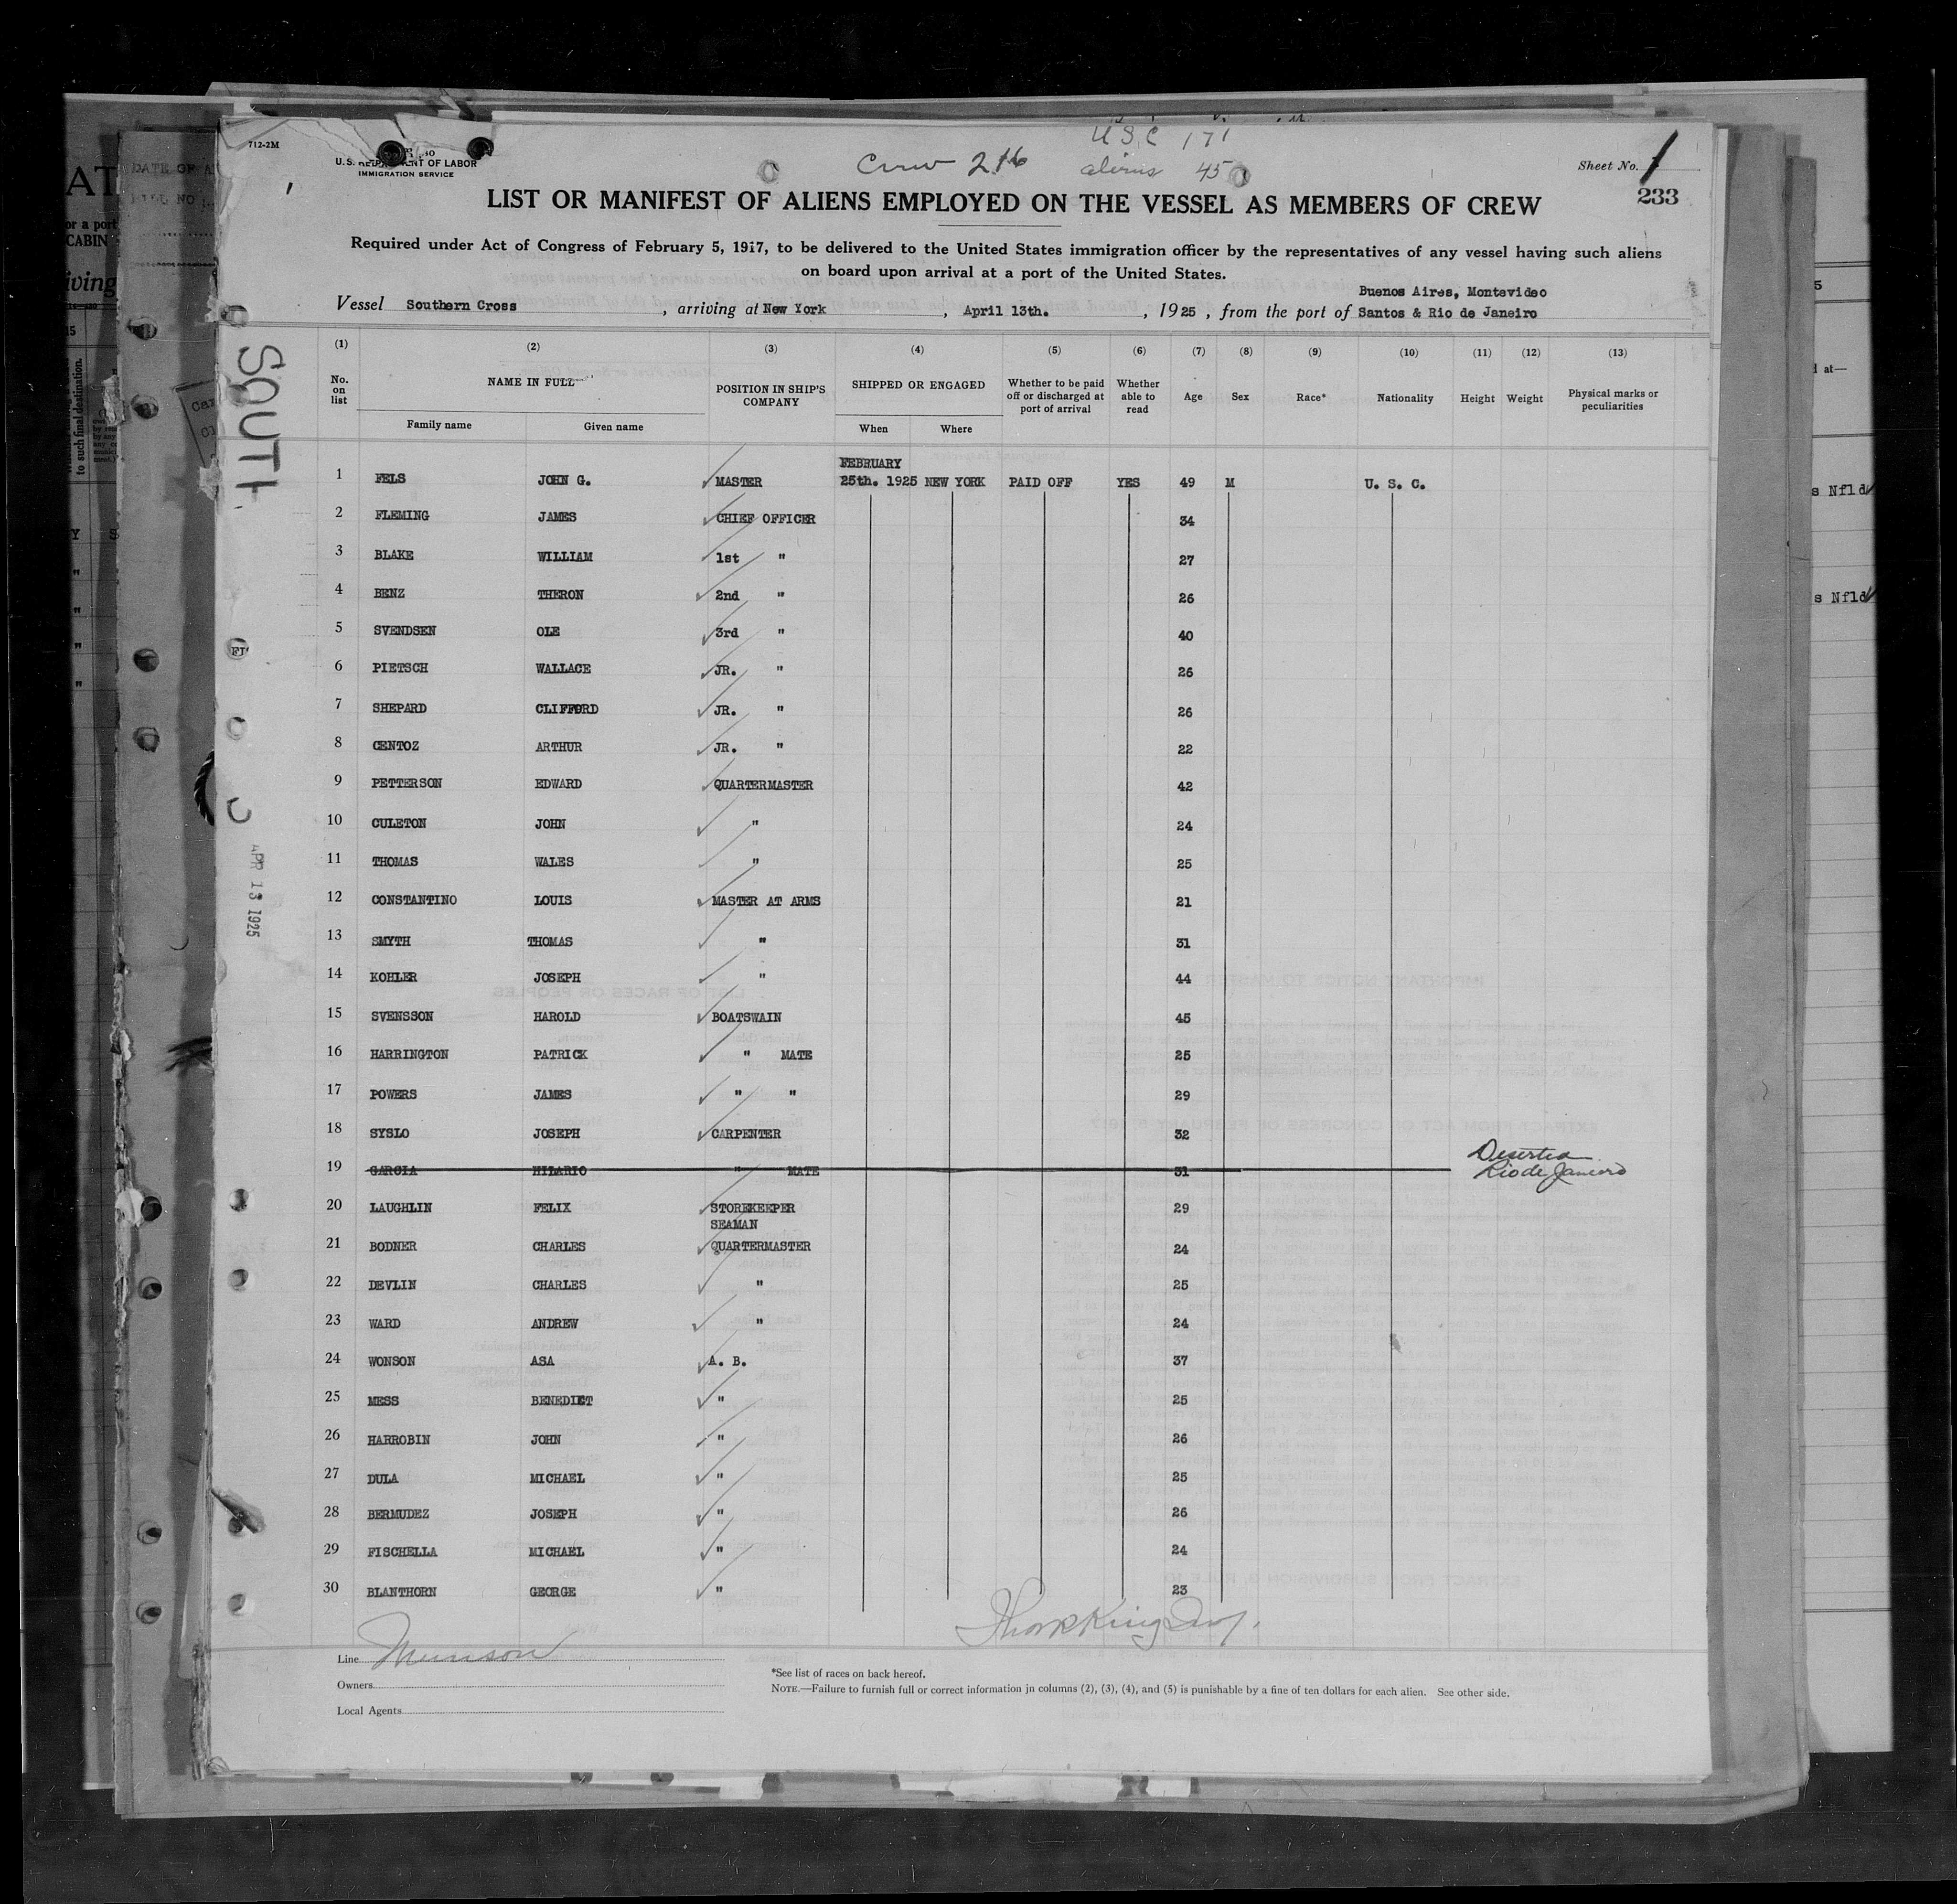 712-2M
U.S. DEPARTMENT OF LABOR
IMMIGRATION SERVICE
Crew 216
U S C 171
aliens 45
Sheet No. 1
233
LIST OR MANIFEST OF ALIENS EMPLOYED ON THE VESSEL AS MEMBERS OF CREW
Required under Act of Congress of February 5, 1917, to be delivered to the United States immigration officer by the representatives of any vessel having such aliens
on board upon arrival at a port of the United States.
Vessel Southern Cross, arriving at New York, April 13th., 1925, from the port of Buenos Aires, Montevideo
Santos & Rio de Janeiro
(1) (2) (3) (4) (5) (6) (7) (8) (9) (10) (11) (12) (13)
No. on list NAME IN FULL POSITION IN SHIP'S COMPANY SHIPPED OR ENGAGED Whether to be paid off or discharged at port of arrival Whether able to read Age Sex Race* Nationality Height Weight Physical marks or peculiarities
Family name Given name When Where
1 FELS JOHN G. MASTER FEBRUARY 25th. 1925 NEW YORK PAID OFF YES 49 M U. S. C.
2 FLEMING JAMES CHIEF OFFICER 34
3 BLAKE WILLIAM 1st " 27
4 BENZ THERON 2nd " 26
5 SVENDSEN OLE 3rd " 40
6 PIETSCH WALLACE JR. " 26
7 SHEPARD CLIFFORD JR. " 26
8 CENTOZ ARTHUR JR. " 22
9 PETTERSON EDWARD QUARTERMASTER 42
10 CULETON JOHN " 24
11 THOMAS WALES " 25
12 CONSTANTINO LOUIS MASTER AT ARMS 21
13 SMYTH THOMAS " 31
14 KOHLER JOSEPH " 44
15 SVENSSON HAROLD BOATSWAIN 45
16 HARRINGTON PATRICK " MATE 25
17 POWERS JAMES " " 29
18 SYSLO JOSEPH CARPENTER 32
19 GARCIA HILARIO " MATE 31 Deserted Rio de Janeiro
20 LAUGHLIN FELIX STOREKEEPER 29
SEAMAN
21 BODNER CHARLES QUARTERMASTER 24
22 DEVLIN CHARLES " 25
23 WARD ANDREW " 24
24 WONSON ASA A. B. 37
25 MESS BENEDICT " 25
26 HARROBIN JOHN " 26
27 DULA MICHAEL " 25
28 BERMUDEZ JOSEPH " 26
29 FISCHELLA MICHAEL " 24
30 BLANTHORN GEORGE " 23
Line Munson
Owners
Local Agents
*See list of races on back hereof.
NOTE.—Failure to furnish full or correct information in columns (2), (3), (4), and (5) is punishable by a fine of ten dollars for each alien. See other side.
SOUTH
APR 13 1925
s Nfld
s Nfld